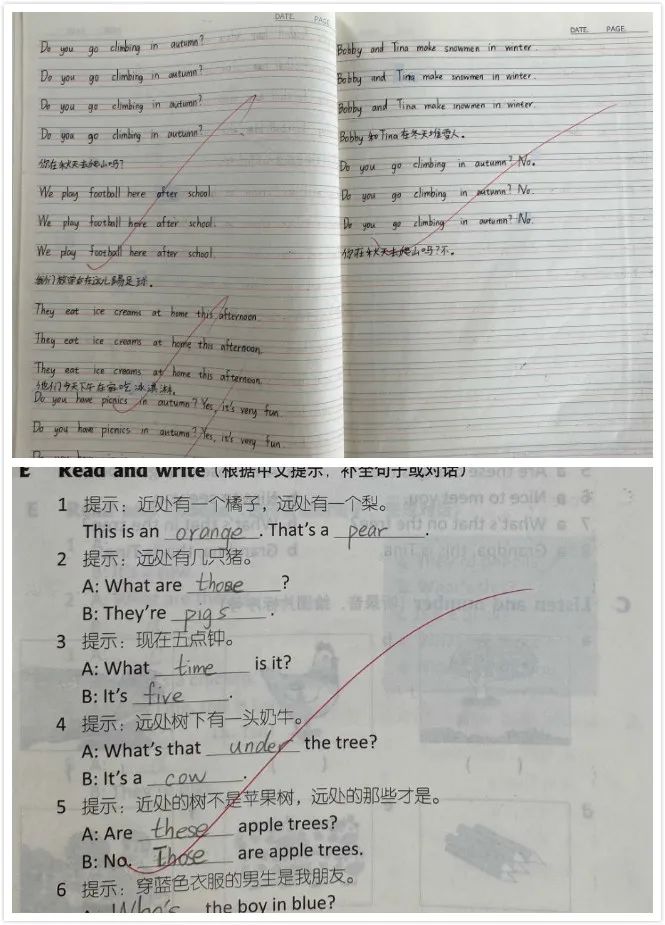 DATE PAGE
Do you go climbing in autumn?
Do you go climbing in autumn?
Do you go climbing in autumn?
Do you go climbing in autumn?
你在秋天去爬山吗?
We play football here after school.
We play football here after school.
We play football here after school.
我们放学后在这儿踢足球。
They eat ice creams at home this afternoon.
They eat ice creams at home this afternoon.
They eat ice creams at home this afternoon.
他们今天下午在家吃冰淇淋。
Do you have picnics in autumn? Yes, it's very fun.
Do you have picnics in autumn? Yes, it's very fun.
DATE PAGE
Bobby and Tina make snowmen in winter.
Bobby and Tina make snowmen in winter.
Bobby and Tina make snowmen in winter.
Bobby和Tina在冬天堆雪人。
Do you go climbing in autumn? No.
Do you go climbing in autumn? No.
Do you go climbing in autumn? No.
你在秋天去爬山吗?不。
E Read and write (根据中文提示,补全句子或对话)
1 提示:近处有一个橘子,远处有一个梨。
This is an orange. That's a pear.
2 提示:远处有几只猪。
A: What are those?
B: They're pigs.
3 提示:现在五点钟。
A: What time is it?
B: It's five.
4 提示:远处树下有一头奶牛。
A: What's that under the tree?
B: It's a cow.
5 提示:近处的树不是苹果树,远处的那些才是。
A: Are these apple trees?
B: No. Those are apple trees.
6 提示:穿蓝色衣服的男生是我朋友。
A: Who's the boy in blue?